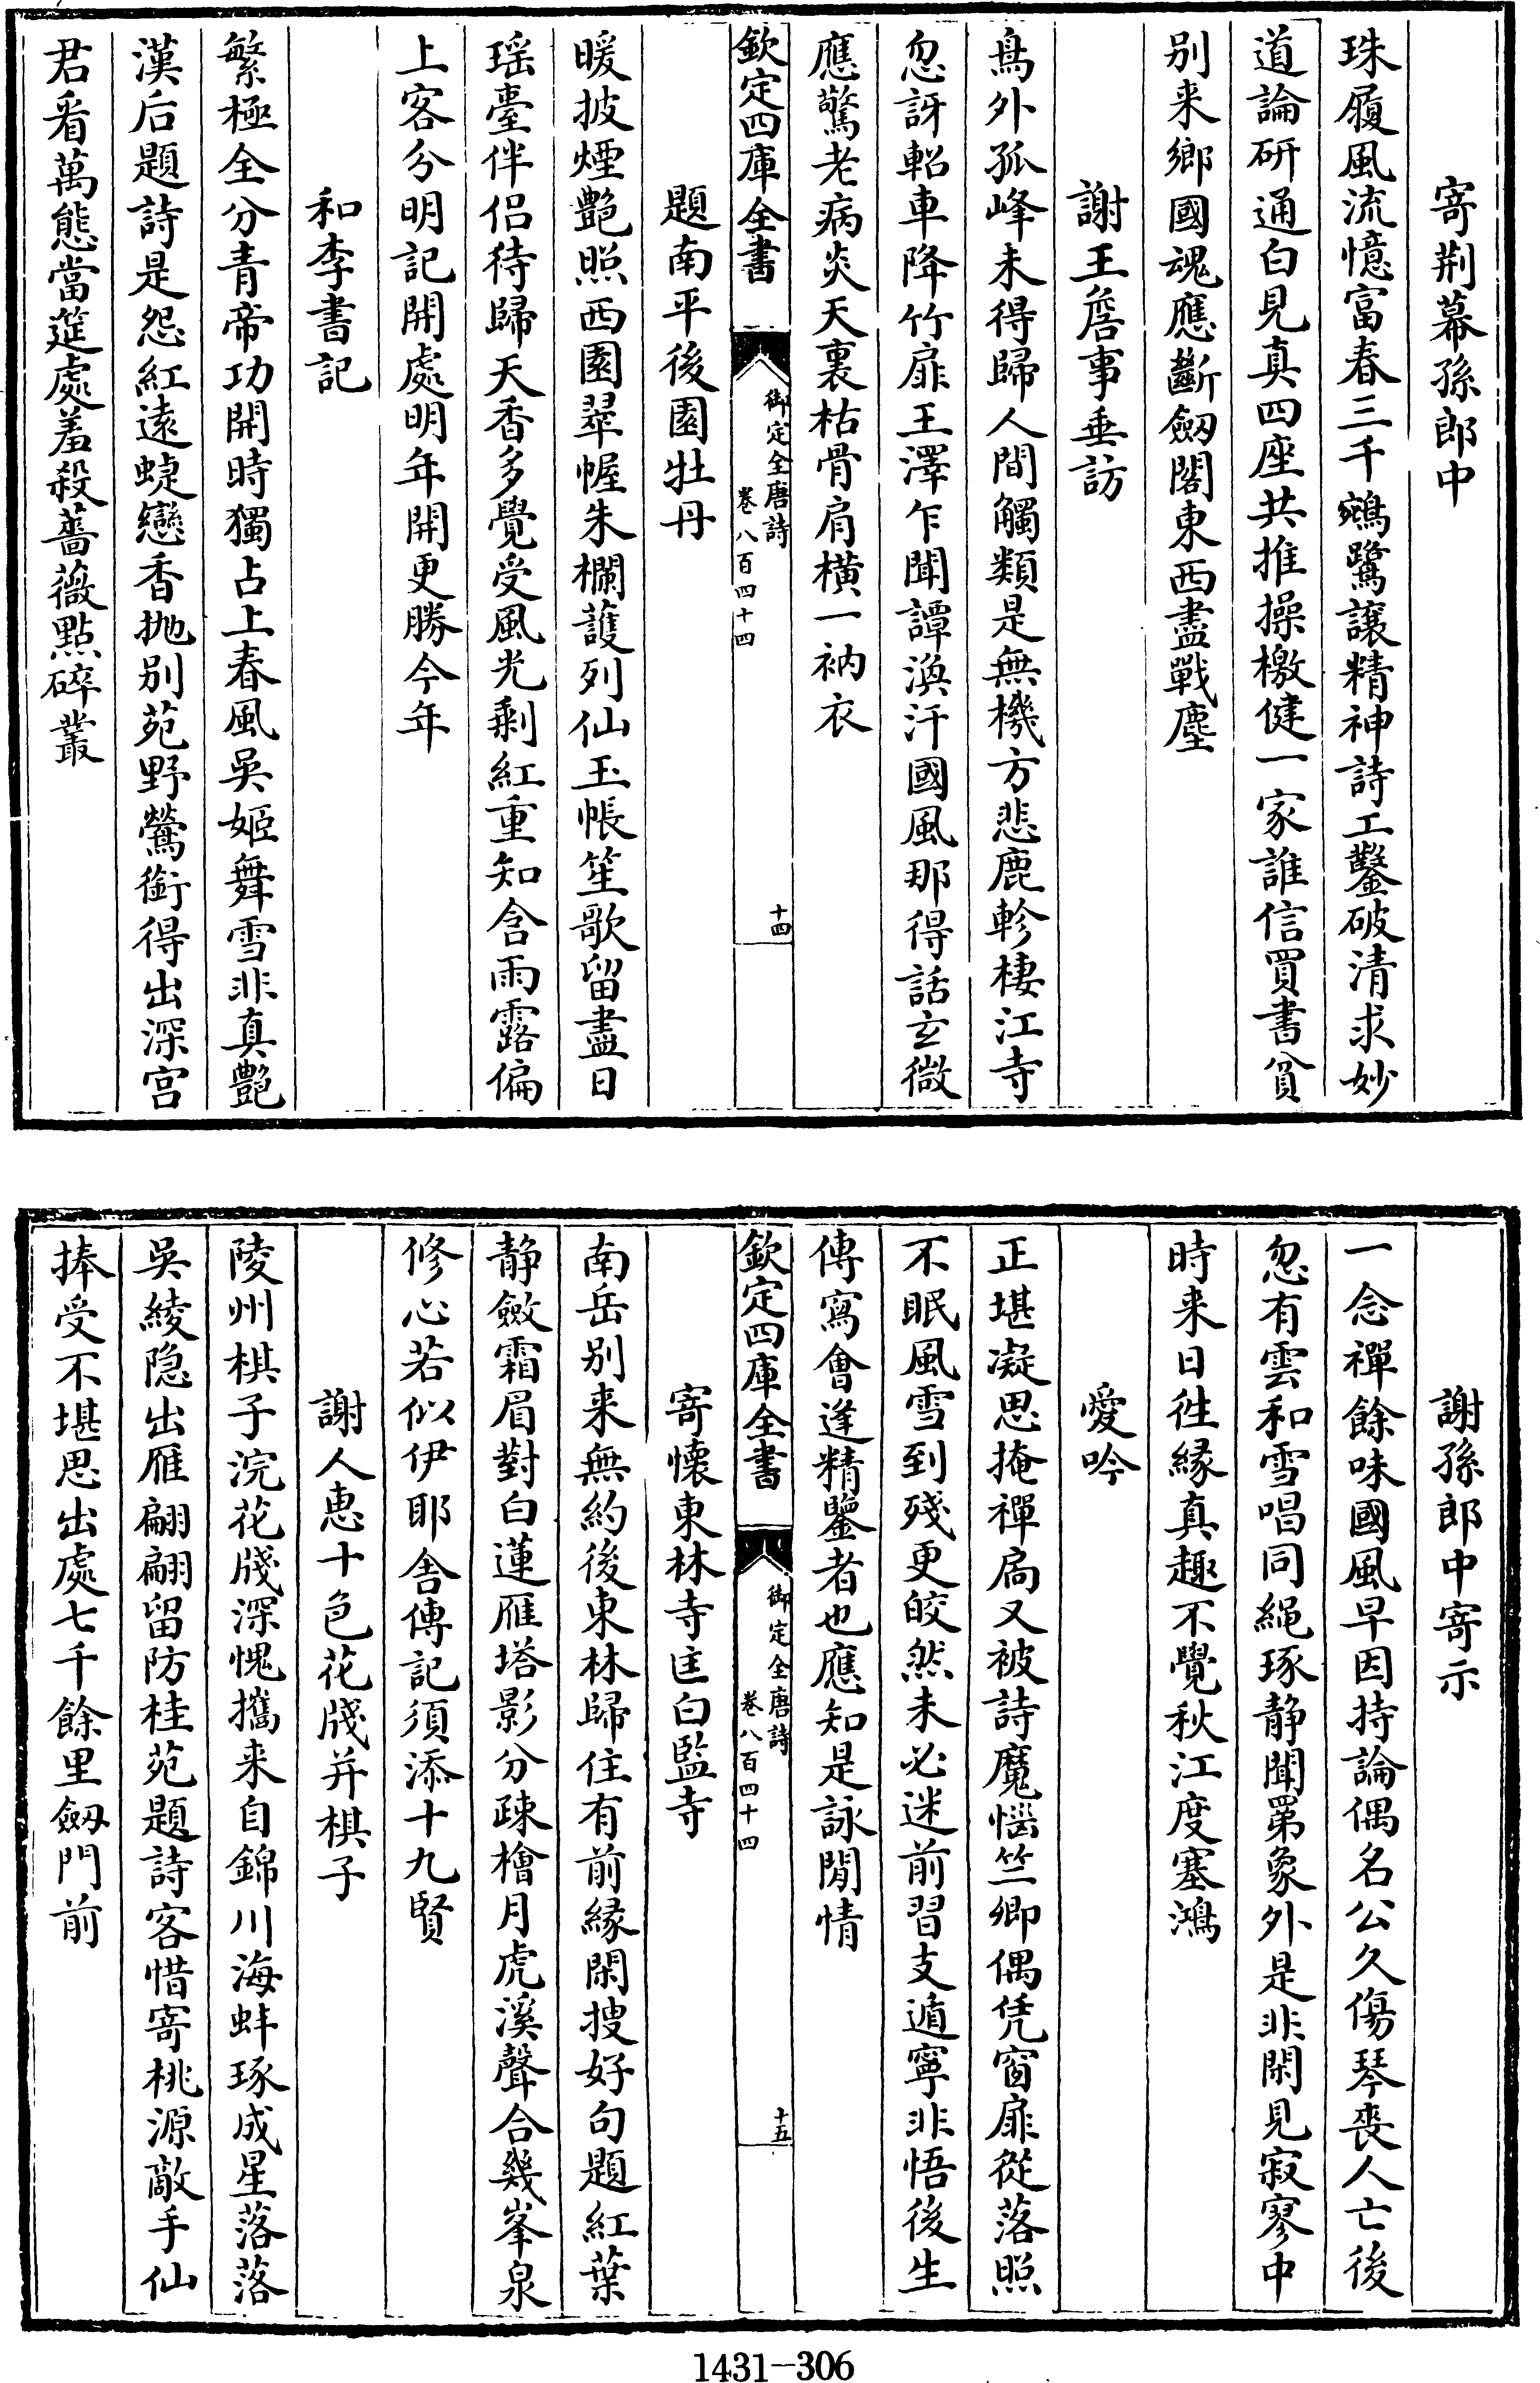 寄荆幕孫郎中
珠履風流憶富春三千鵷鷺讓精神詩工鑿破清求妙
道論研通白見真四座共推操檄健一家誰信買書貧
别来鄉國魂應斷劔閣東西盡戰塵
謝王詹事垂訪
鳥外孤峰未得歸人間觸類是無機方悲鹿軫棲江寺
忽訝軺車降竹扉王澤乍聞譚渙汗國風那得話玄微
應驚老病炎天裏枯骨肩橫一衲衣
欽定四庫全書
御定全唐詩
卷八百四十四
十四
題南平後園牡丹
暖披煙艶照西園翠幄朱欄護列仙玉帳笙歌留盡日
瑶臺伴侣待歸天香多覺受風光剩紅重知含雨露偏
上客分明記開處明年開更勝今年
和李書記
繁極全分青帝功開時獨占上春風吳姬舞雪非真艶
漢后題詩是怨紅遠蜨戀香抛别苑野鶯銜得出深宫
君看萬態當筵處羞殺薔薇點碎叢
謝孫郎中寄示
一念禪餘味國風早因持論偶名公久傷琴喪人亡後
忽有雲和雪唱同繩琢静聞罤象外是非閑見寂寥中
時来日徃緣真趣不覺秋江度塞鴻
愛吟
正堪凝思掩禪扃又被詩魔惱竺卿偶凭窗扉從落照
不眠風雪到殘更皎然未必迷前習支遁寧非悟後生
傳寫會逢精鑒者也應知是詠閒情
欽定四庫全書
御定全唐詩
卷八百四十四
十五
寄懷東林寺匡白監寺
南岳别来無約後東林歸住有前緣閑搜好句題紅葉
静斂霜眉對白蓮雁塔影分疎檜月虎溪聲合幾峯泉
修心若似伊耶舍傳記須添十九賢
謝人惠十色花牋并棋子
陵州棋子浣花牋深愧攜来自錦川海蚌琢成星落落
吳綾隐出雁翩翩留防桂苑題詩客惜寄桃源敵手仙
捧受不堪思出處七千餘里劔門前
1431-306